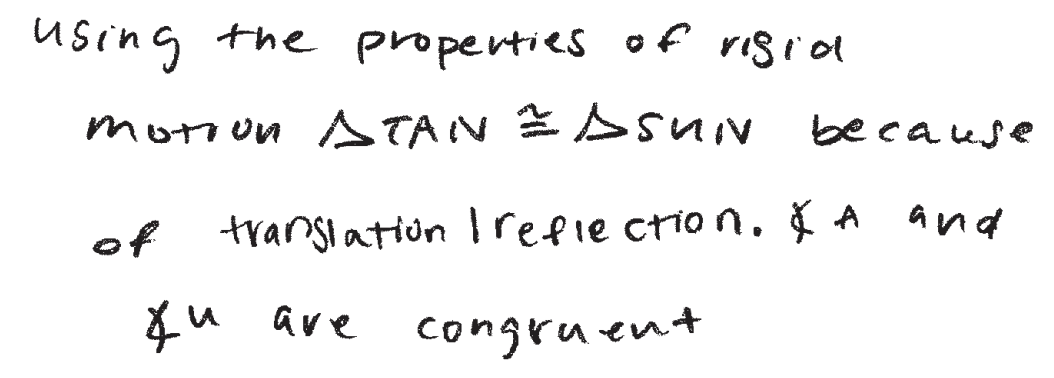 using the properties of rigid
motion △TAN ≅ △SUN because
of translation/reflection. ∡A and
∡u are congruent